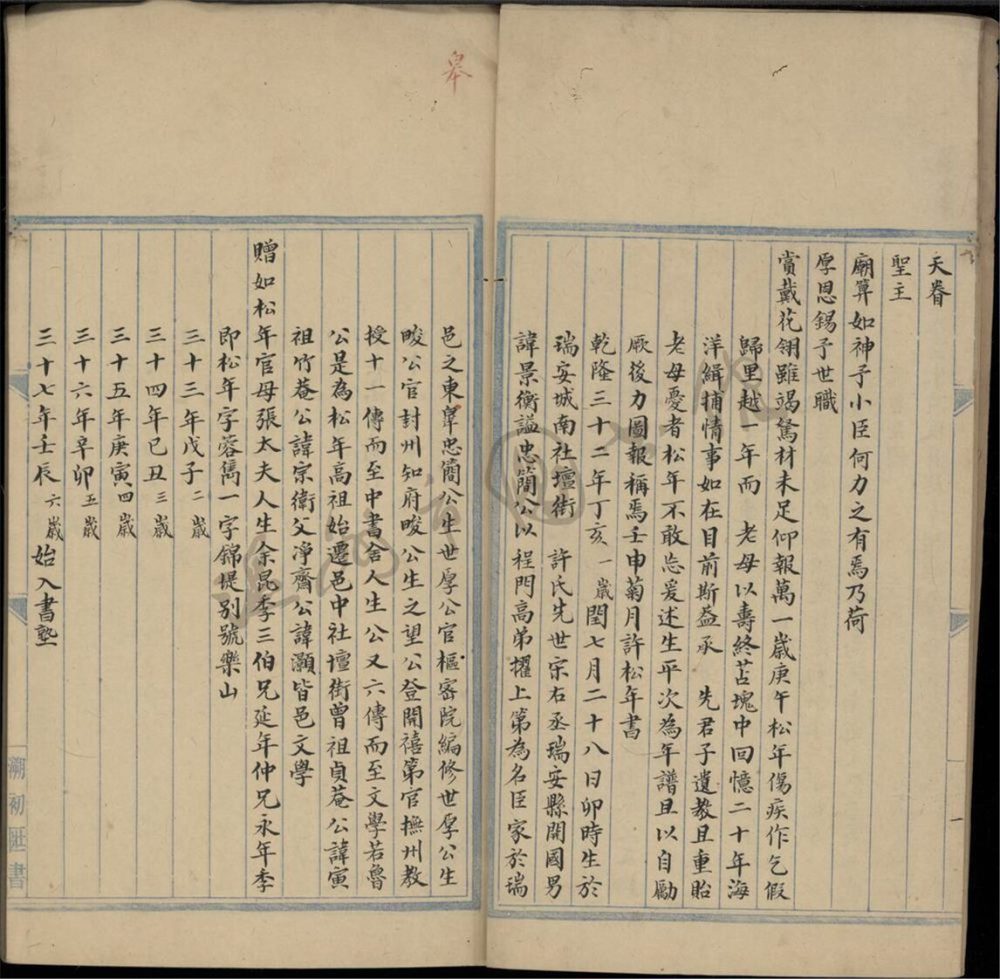 天眷
聖主
廟算如神予小臣何力之有焉乃荷
厚恩錫予世職
賞戴花翎雖竭駑材未足仰報萬一歲庚午松年傷疾作乞假
歸里越一年而 老母以壽終苫塊中回憶二十年海
洋緝捕情事如在目前斯益承 先君子遺教且重貽
老母憂者松年不敢忘爰述生平次為年譜且以自勵
厥後力圖報稱焉壬申菊月許松年書
乾隆三十二年丁亥 一歲 閏七月二十八日卯時生於
瑞安城南社壇街 許氏先世宗右丞瑞安縣開國男
諱景衡謚忠簡公以程門高弟擢上第為名臣家於瑞
皋
邑之東皐忠簡公生世厚公官樞密院編修世厚公生
畯公官封州知府畯公生之望公登開禧第官撫州教
授十一傳而至中書舍人生公又六傳而至文學若魯
公是為松年高祖始遷邑中社壇街曾祖貞菴公諱寅
祖竹菴公諱宗衛父凈齋公諱灝皆邑文學
贈如松年官母張太夫人生余昆季三伯兄延年仲兄永年季
即松年字蓉雋一字錦堤別號樂山
三十三年戊子 二歲
三十四年己丑 三歲
三十五年庚寅 四歲
三十六年辛卯 五歲
三十七年壬辰 六歲 始入書塾
溯初匨書